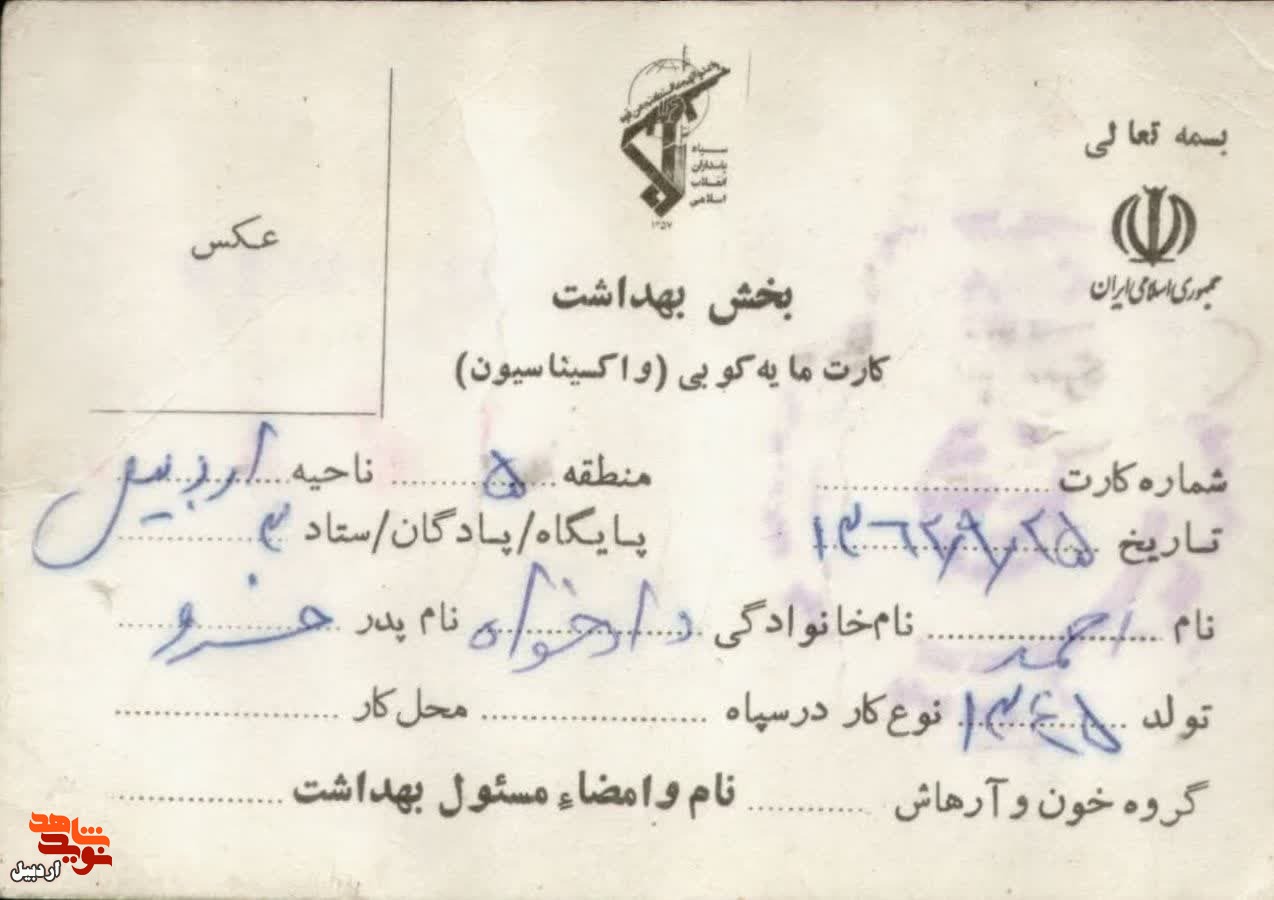 بسمه تعالی
جمهوری اسلامی ایران
سپاه
پاسداران
انقلاب
اسلامی
۱۳۵۷
عکس
بخش بهداشت
کارت مایه کوبی (واکسیناسیون)
شماره کارت منطقه ۵ ناحیه اردبیل
تاریخ ۱۳۶۲/۹/۲۵ پایگاه/پادگان/ستاد ۳
نام احمد نام خانوادگی دادخواه نام پدر خسرو
تولد ۱۳۴۵ نوع کار در سپاه محل کار
گروه خون و آرهاش نام و امضاء مسئول بهداشت
نوید شاهد
اردبیل